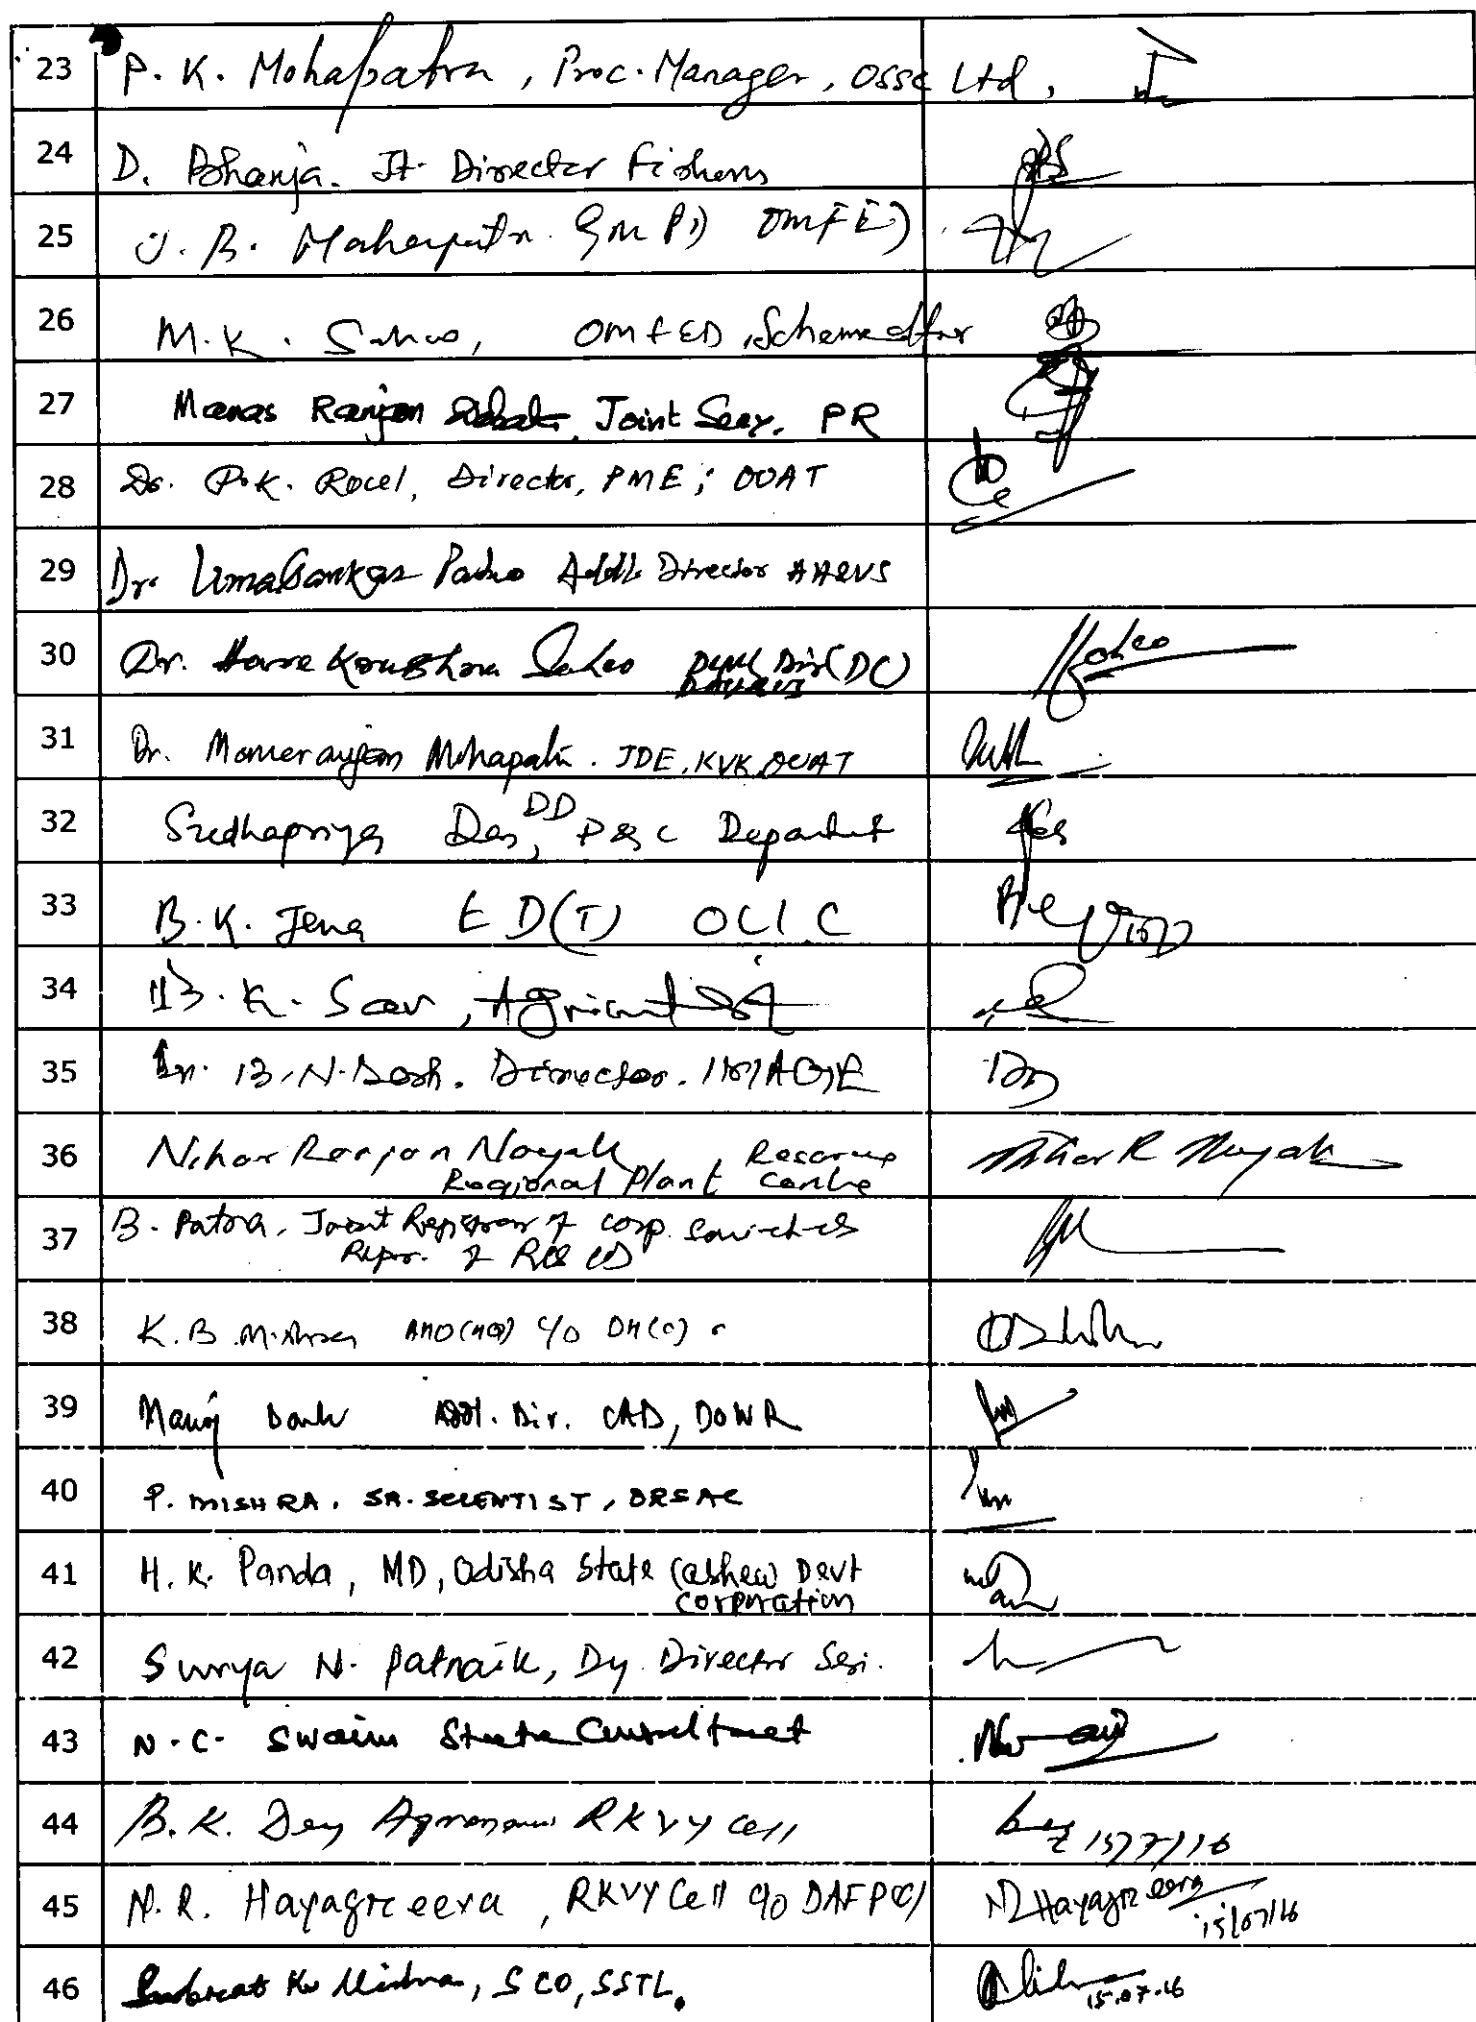 23 P. K. Mohapatra, Proc. Manager, OSSC Ltd.
24 D. Bhanja. Jt. Director Fishery
25 J. B. Mahapatra
26 M. K. Sahoo, OMFED, Scheme officer
27 Manas Ranjan Joint Secy. PR
28 Dr. P. K. Roul, Director, PME; OUAT
29 Dr. Umasankar Padhi Addl. Director AH&VS
30 Dr. Hare Krushna Sahoo (DC)
Sahoo
31 Dr. Manoranjan Mohapatra. JDE, KVK, OUAT
DD
32 Sudhapriya Das, P&C Department
Das
33 B. K. Jena ED(T) OCIC
34 B. K.
35 Dr. B. N. Dash. Director. IMAGE
36 Nihar Ranjan Nayak Resource
Regional Plant Centre
Nihar R Nayak
37 B. Patra, Joint Registrar of Coop. Societies
Repr. of RCS (O)
38 K. B. Mishra AHO(HQ) C/o DH(O)
39 Manoj Dash Addl. Dir. CAD, DOWR
40 P. MISHRA, SR. SCIENTIST, ORSAC
41 H. K. Panda, MD, Odisha State Cashew Devt
Corporation
42 Surya N. Patnaik, Dy. Director Seri.
43 N. C. Swain State Consultant
44 B. K. Dey Agronomist RKVY Cell
15/7/16
45 N. R. Hayagreeva, RKVY Cell C/o DAFP(O)
NR Hayagreeva
15/07/16
46 Subrat Ku Mishra, SCO, SSTL.
15.07.16